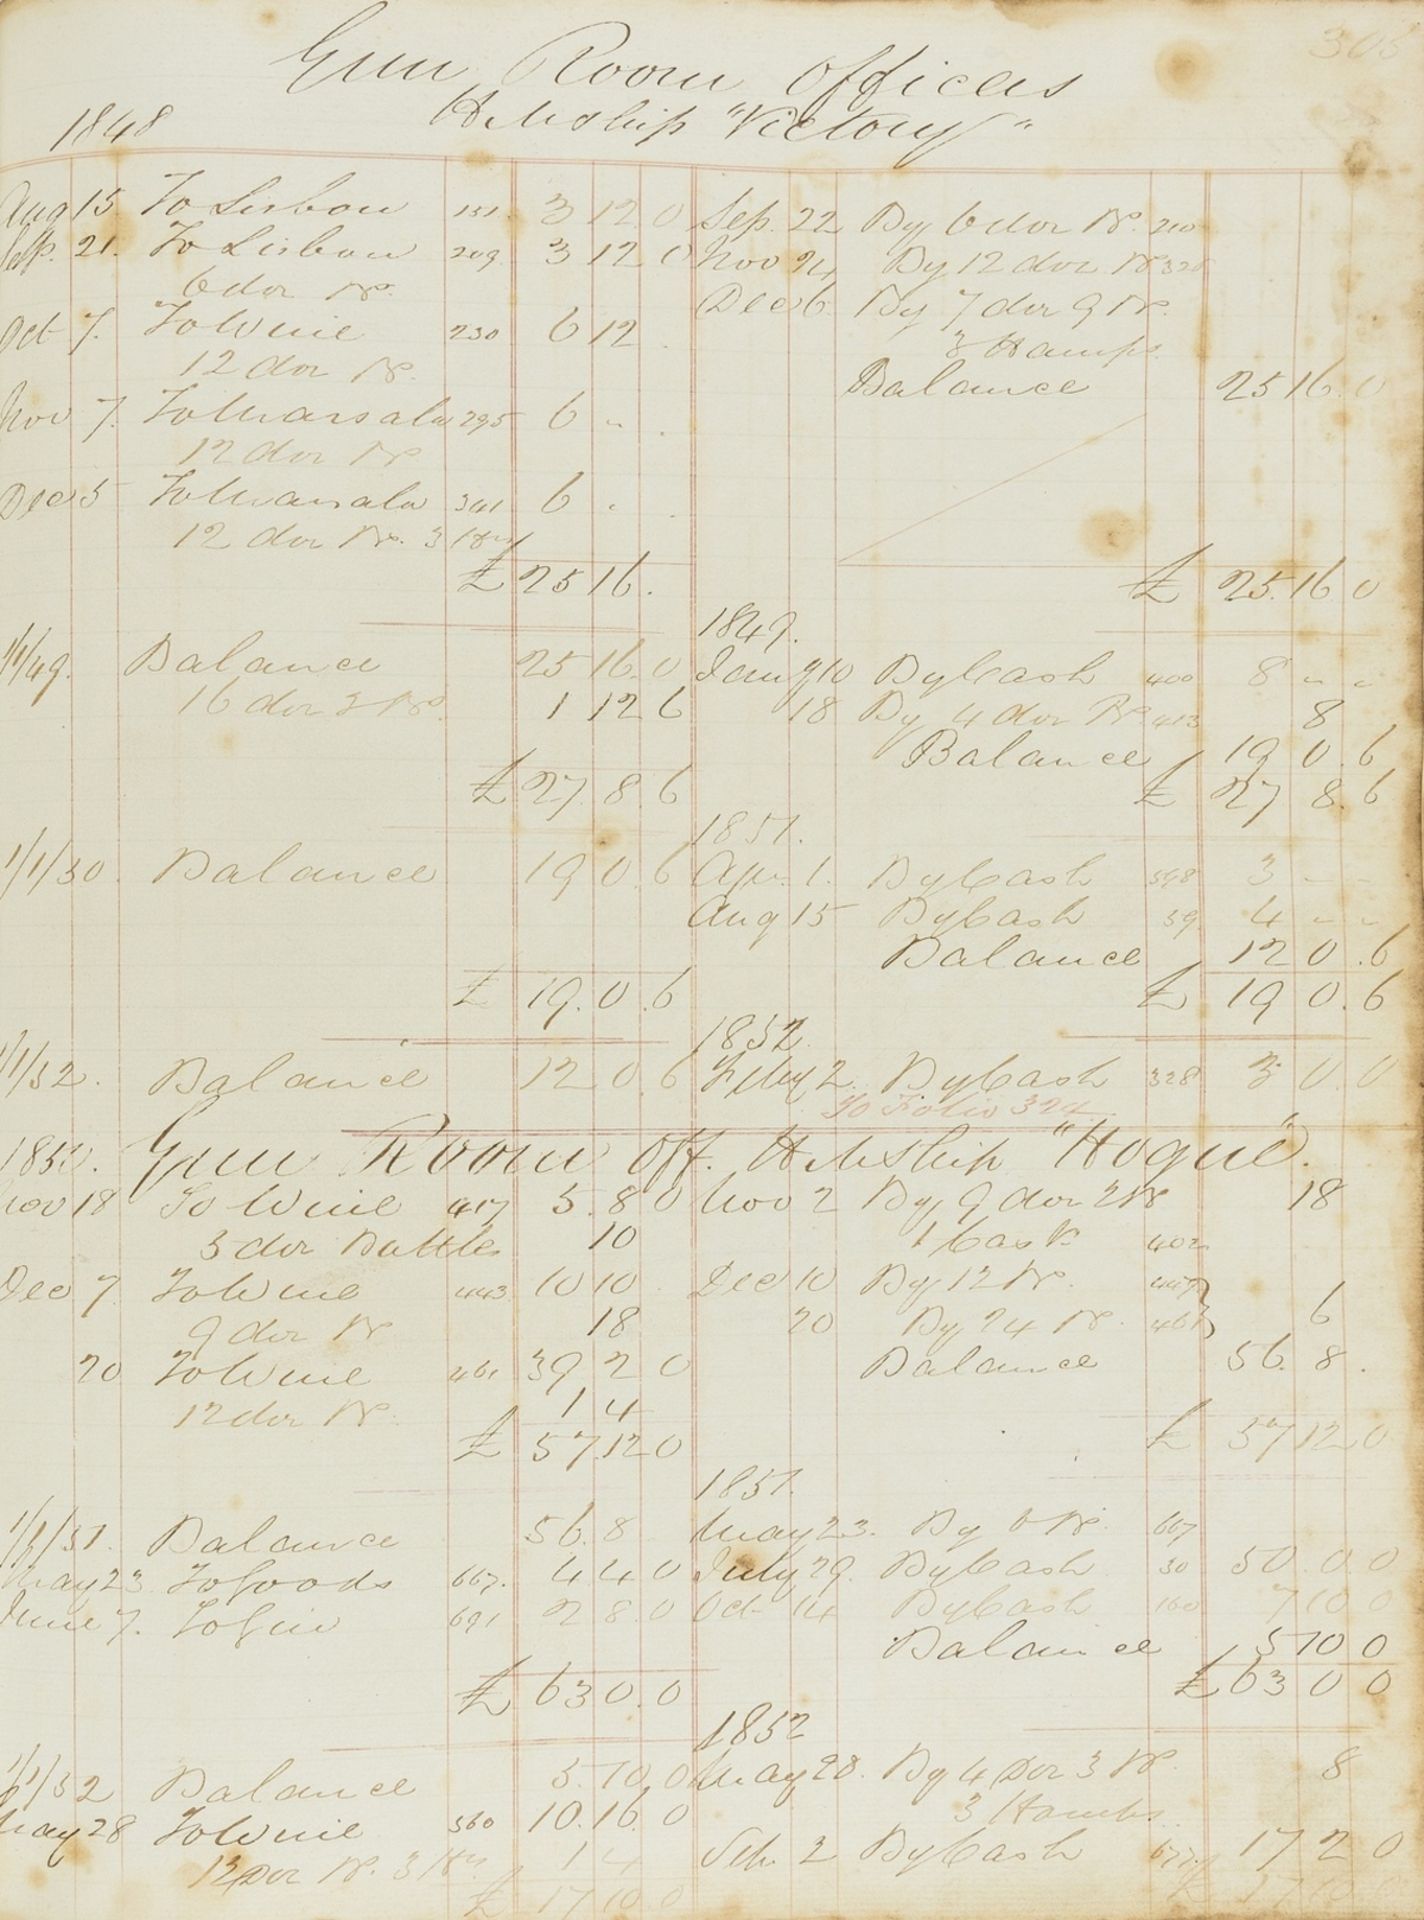 305
Gun Room Officers
H M Ship "Victory"
1848
Aug 15 To Lisbon 151 3 12 0 Sep. 22 By 6 doz B. 210
Sep. 21. To Lisbon 209 3 12 0 Nov 24 By 12 doz B 328
6 doz B. Dec 6 By 7 doz 9 B.
Oct 7. To Wine 230 6 12 . 3 Hamps.
12 doz B. Balance 25 16. 0
Nov 7. To Marsala 295 6 " .
12 doz B
Dec 5 To Marsala 341 6 . .
12 doz B. 3 Hrs
£ 25 16. £ 25. 16. 0
1849.
1/1/49. Balance 25 16. 0 Jany 10 By Cash 400 8 " "
16 doz 3 B. 1 12 6 18 By 4 doz B 413 8
Balance 19 0. 6
£ 27. 8. 6 £ 27 8. 6
1851.
1/1/50. Balance 19 0. 6 Apr. 1. By Cash 598 3 " "
Aug 15 By Cash 59 4 " "
Balance 12 0. 6
£ 19. 0. 6 £ 19 0. 6
1852.
1/1/52. Balance 12 0 6 Feby 2. By Cash 328 3 0 0
To Folio 324
1850. Gun Room Off. H M Ship "Hogue".
Nov 18 To Wine 417 5. 8 0 Nov 2 By 9 doz 2 B 18
5 doz Bottles 10 1 Cask 402
Dec 7. To Wine 443 10 10 . Dec 10 By 12 B. 447
9 doz B 18 20 By 24 B. 461 6
20 To Wine 461 39 2 0 Balance 56. 8 .
12 doz B. 1 4
£ 57 12 0 £ 57 12 0
1851.
1/1/51. Balance 56. 8 May 23. By 6 B. 667
May 23 To Goods 667. 4 4 0 July 29. By Cash 30 50. 0. 0
June 7. To Gin 691 2 8. 0 Oct 14 By Cash 160 7 10 0
Balance 5 10 0
£ 63 0. 0 £ 63 0 0
1852
1/1/52 Balance 5. 10. 0 May 28. By 4 Doz 3 B. 8
May 28 To Wine 560 10. 16. 0 3 Hambs.
12 Doz B. 3 Hrs 1 4 Seb. 2 By Cash 677. 17 2 0
£ 17 10 0 £ 17 10 0